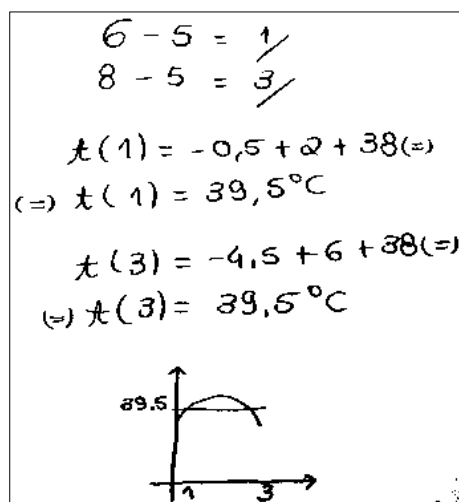 6 - 5 = 1/
8 - 5 = 3/
t(1) = -0,5 + 2 + 38 (=)
(=) t(1) = 39,5°C
t(3) = -4,5 + 6 + 38 (=)
(=) t(3) = 39,5°C
39.5
1 3